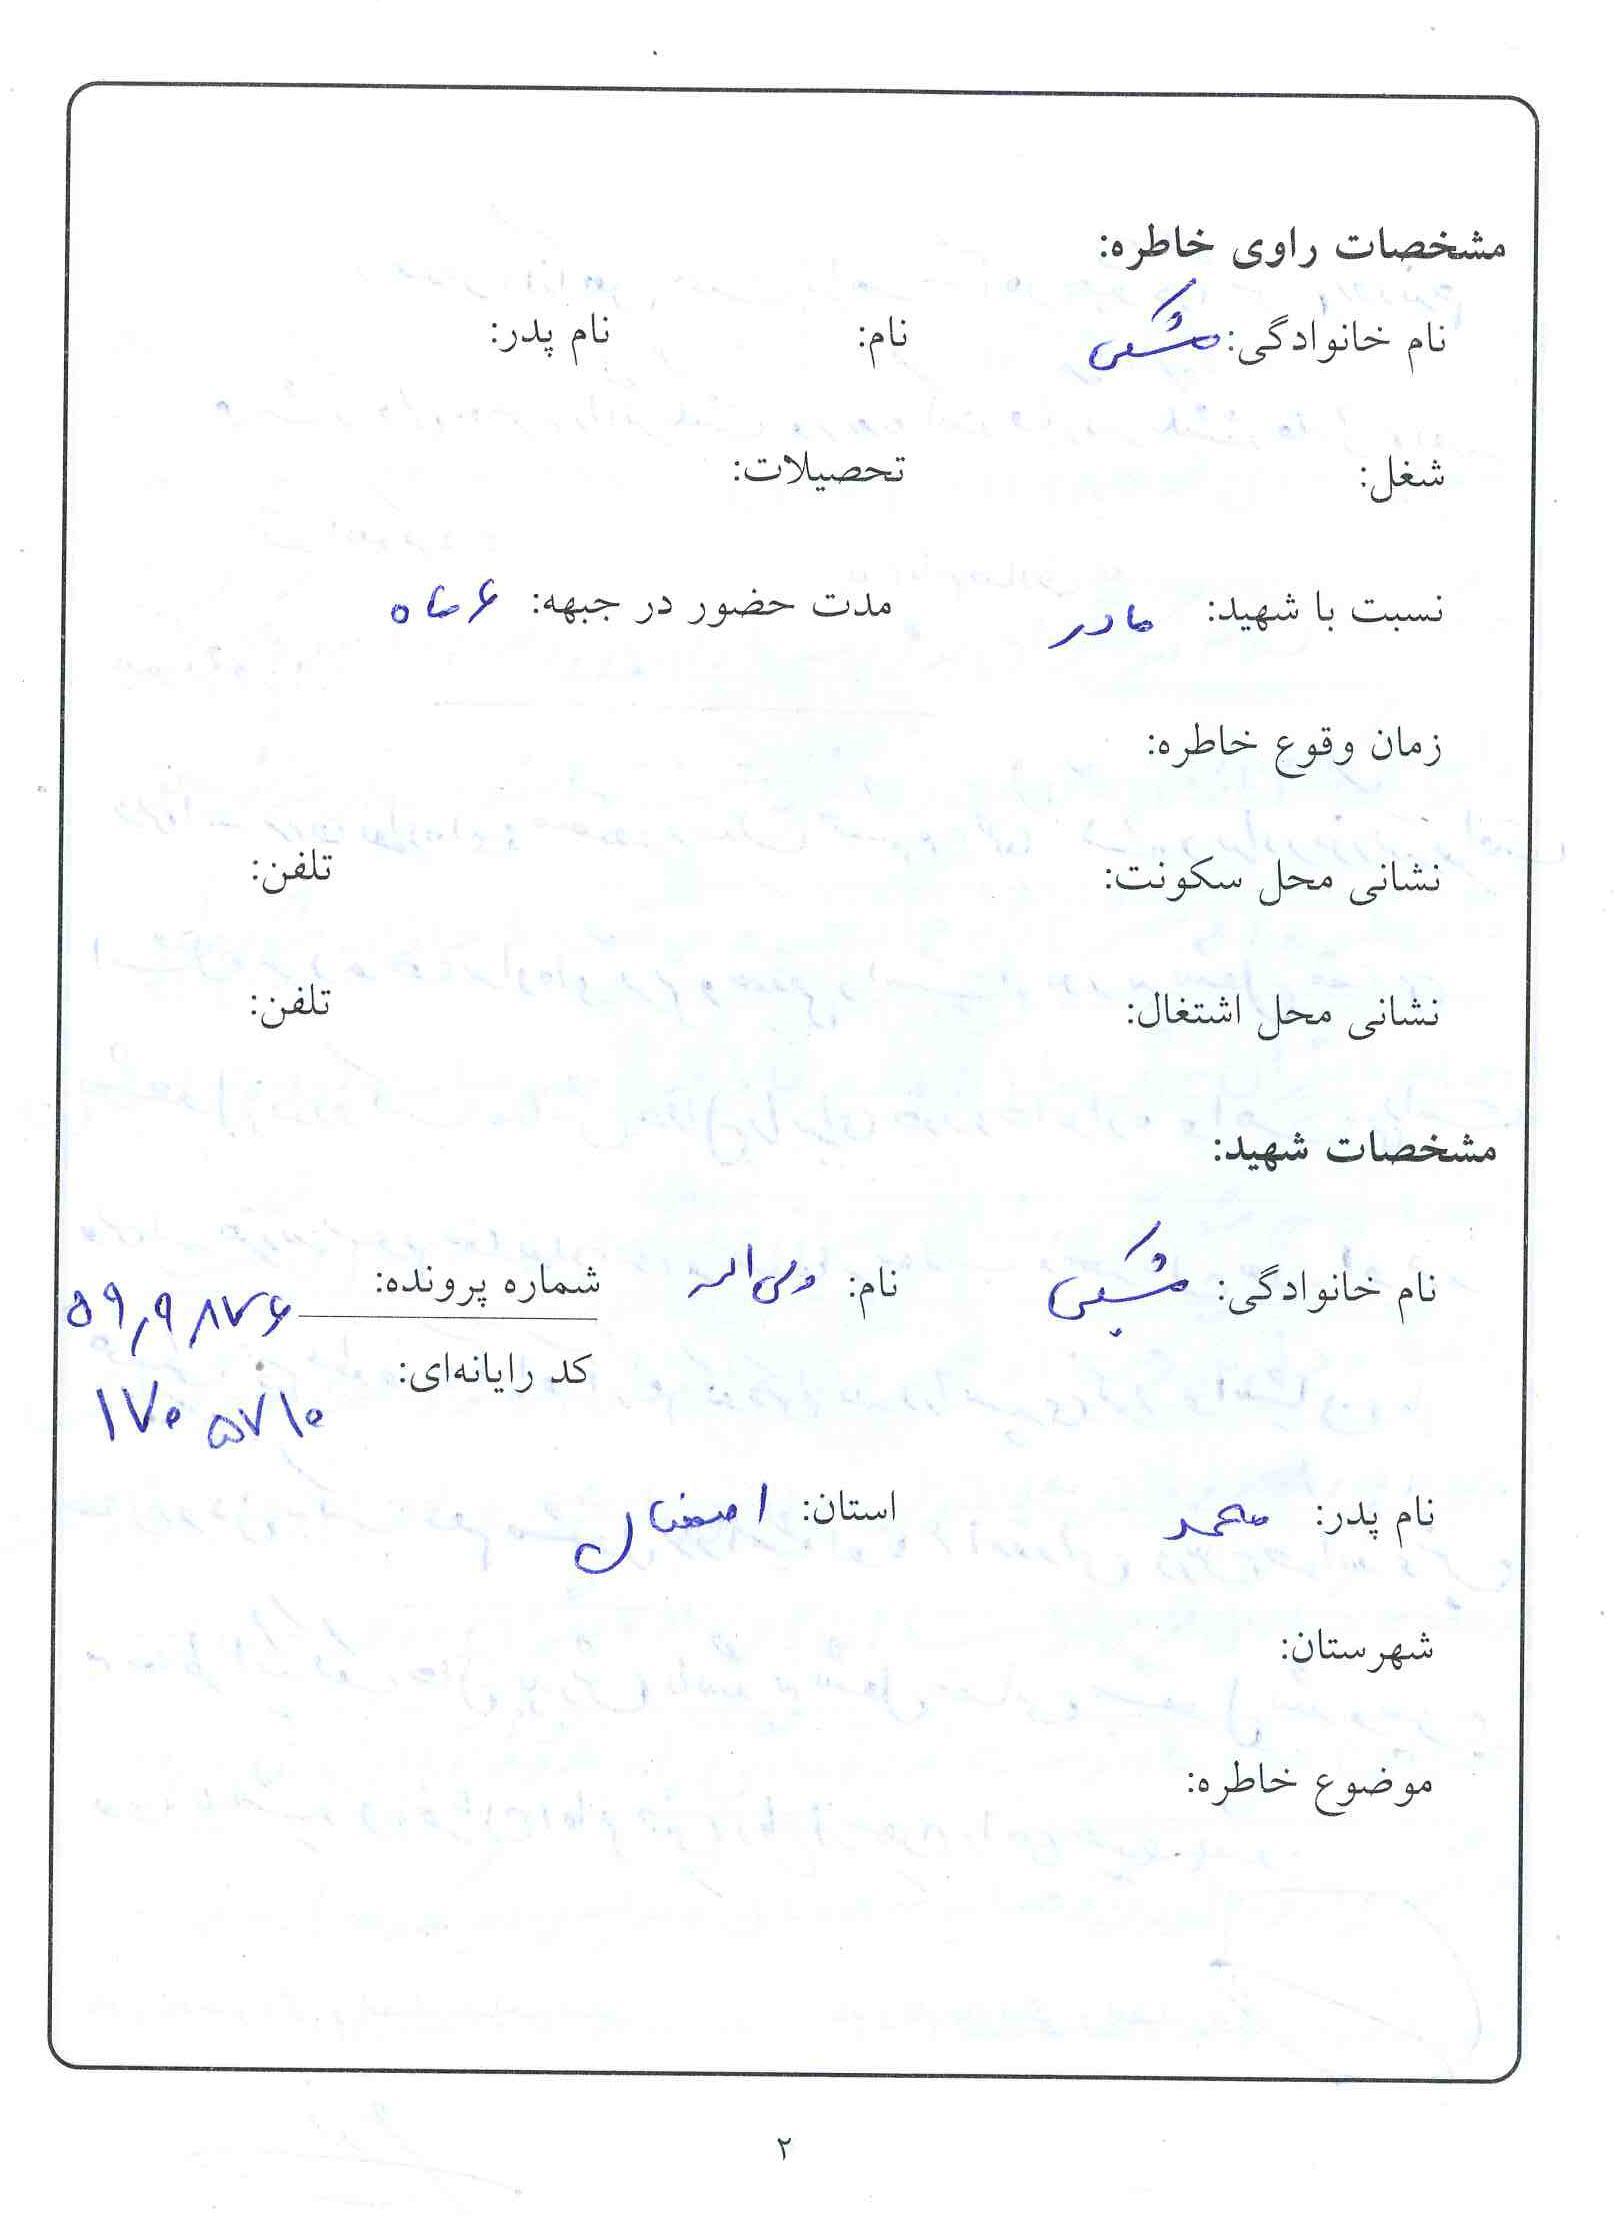 مشخصات راوی خاطره:
نام خانوادگی: نام: نام پدر:
شغل: تحصیلات:
نسبت با شهید: مادر مدت حضور در جبهه: ۶ ماه
زمان وقوع خاطره:
نشانی محل سکونت: تلفن:
نشانی محل اشتغال: تلفن:
مشخصات شهید:
نام خانوادگی: نام: ولی اله شماره پرونده: ۵۹,۹۸۷۶
کد رایانه‌ای: ۱۷۰۵۷۱۰
نام پدر: محمد استان: اصفهان
شهرستان:
موضوع خاطره:
۲